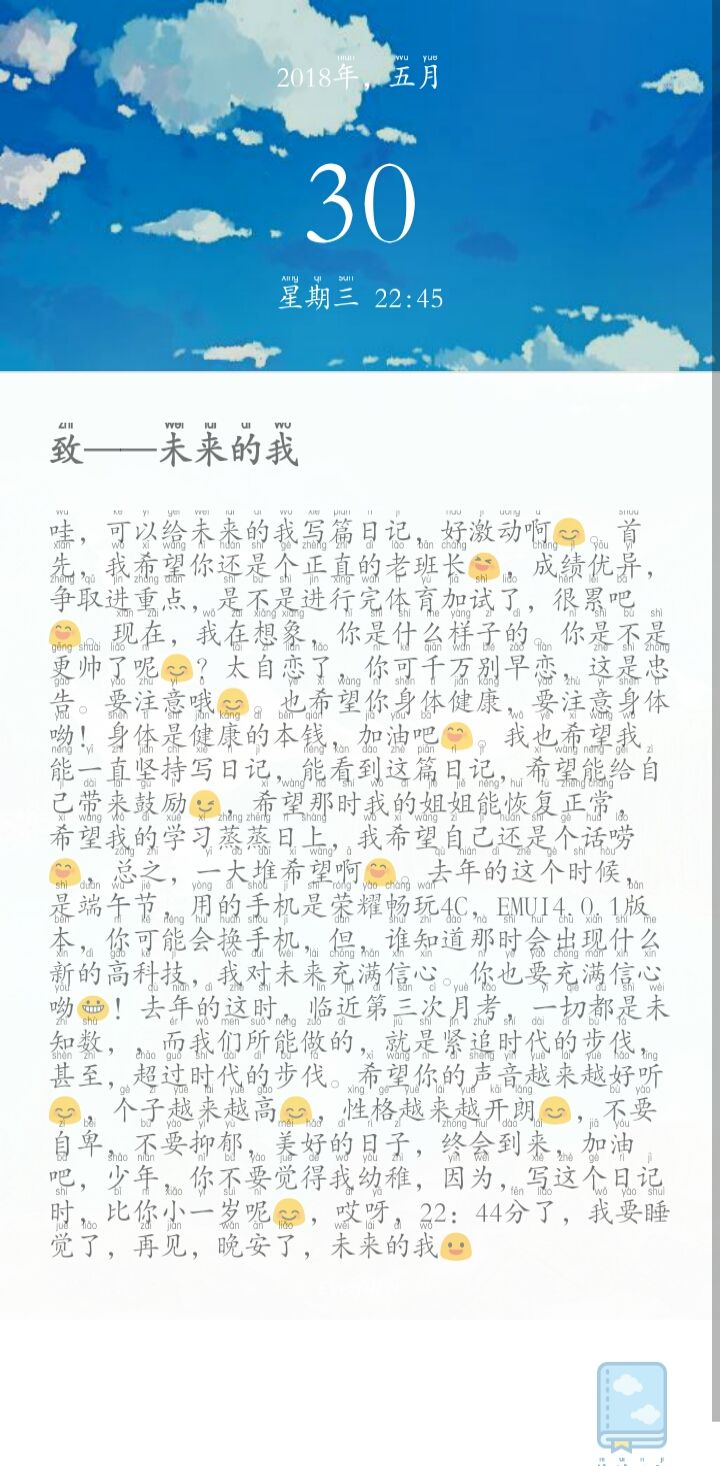 2018年，五月
30
星期三 22:45
致——未来的我
哇，可以给未来的我写篇日记，好激动啊😊。首
先，我希望你还是个正直的老班长😆，成绩优异，
争取进重点，是不是进行完体育加试了，很累吧
😄。现在，我在想象，你是什么样子的。你是不是
更帅了呢😊？太自恋了，你可千万别早恋，这是忠
告。要注意哦😊。也希望你身体健康，要注意身体
呦！身体是健康的本钱，加油吧😄。我也希望我
能一直坚持写日记，能看到这篇日记，希望能给自
己带来鼓励😉，希望那时我的姐姐能恢复正常，
希望我的学习蒸蒸日上，我希望自己还是个话唠
😄，总之，一大堆希望啊😄。去年的这个时候，
是端午节，用的手机是荣耀畅玩4C，EMUI4.0.1版
本，你可能会换手机，但，谁知道那时会出现什么
新的高科技，我对未来充满信心。你也要充满信心
呦😀！去年的这时，临近第三次月考，一切都是未
知数，，而我们所能做的，就是紧追时代的步伐，
甚至，超过时代的步伐。希望你的声音越来越好听
😊，个子越来越高😊，性格越来越开朗😊，不要
自卑，不要抑郁，美好的日子，终会到来，加油
吧，少年，你不要觉得我幼稚，因为，写这个日记
时，比你小一岁呢😊，哎呀，22：44分了，我要睡
觉了，再见，晚安了，未来的我😃